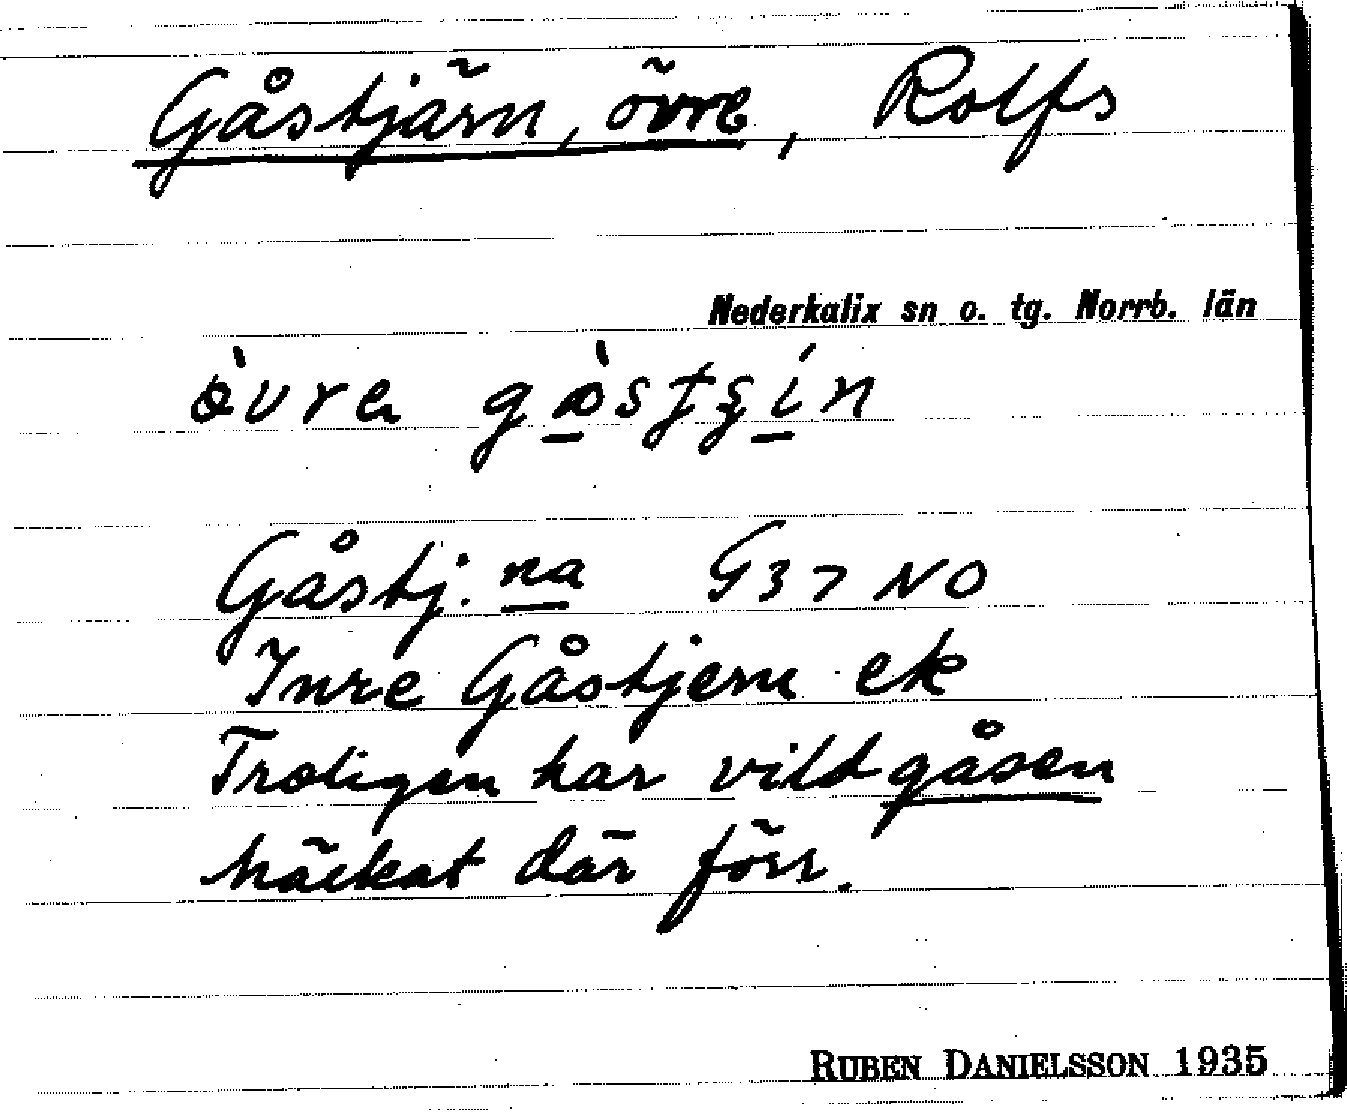 Gåstjärn, övre, Rolfs
Nederkalix sn o. tg. Norrb. län
Gåstj. na G37 NO
Inre Gåstjern ek
Troligen har vildgåsen
häckat där förr.
RUBEN DANIELSSON 1935